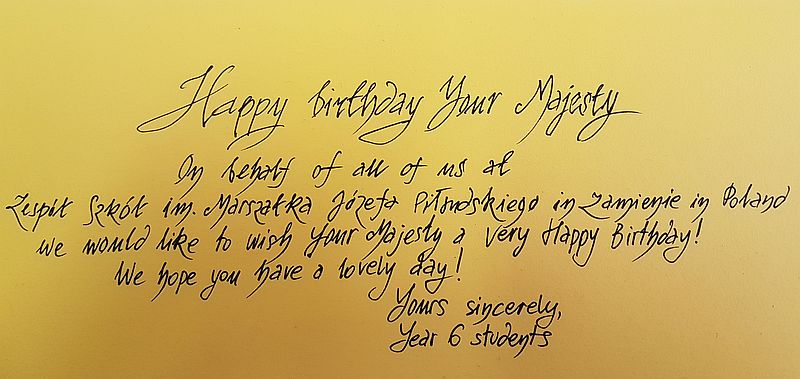 Happy birthday Your Majesty
On behalf of all of us at
Zespół Szkół im. Marszałka Józefa Piłsudskiego in Zamienie in Poland
we would like to wish Your Majesty a Very Happy Birthday!
We hope you have a lovely day!
Yours sincerely,
Year 6 students